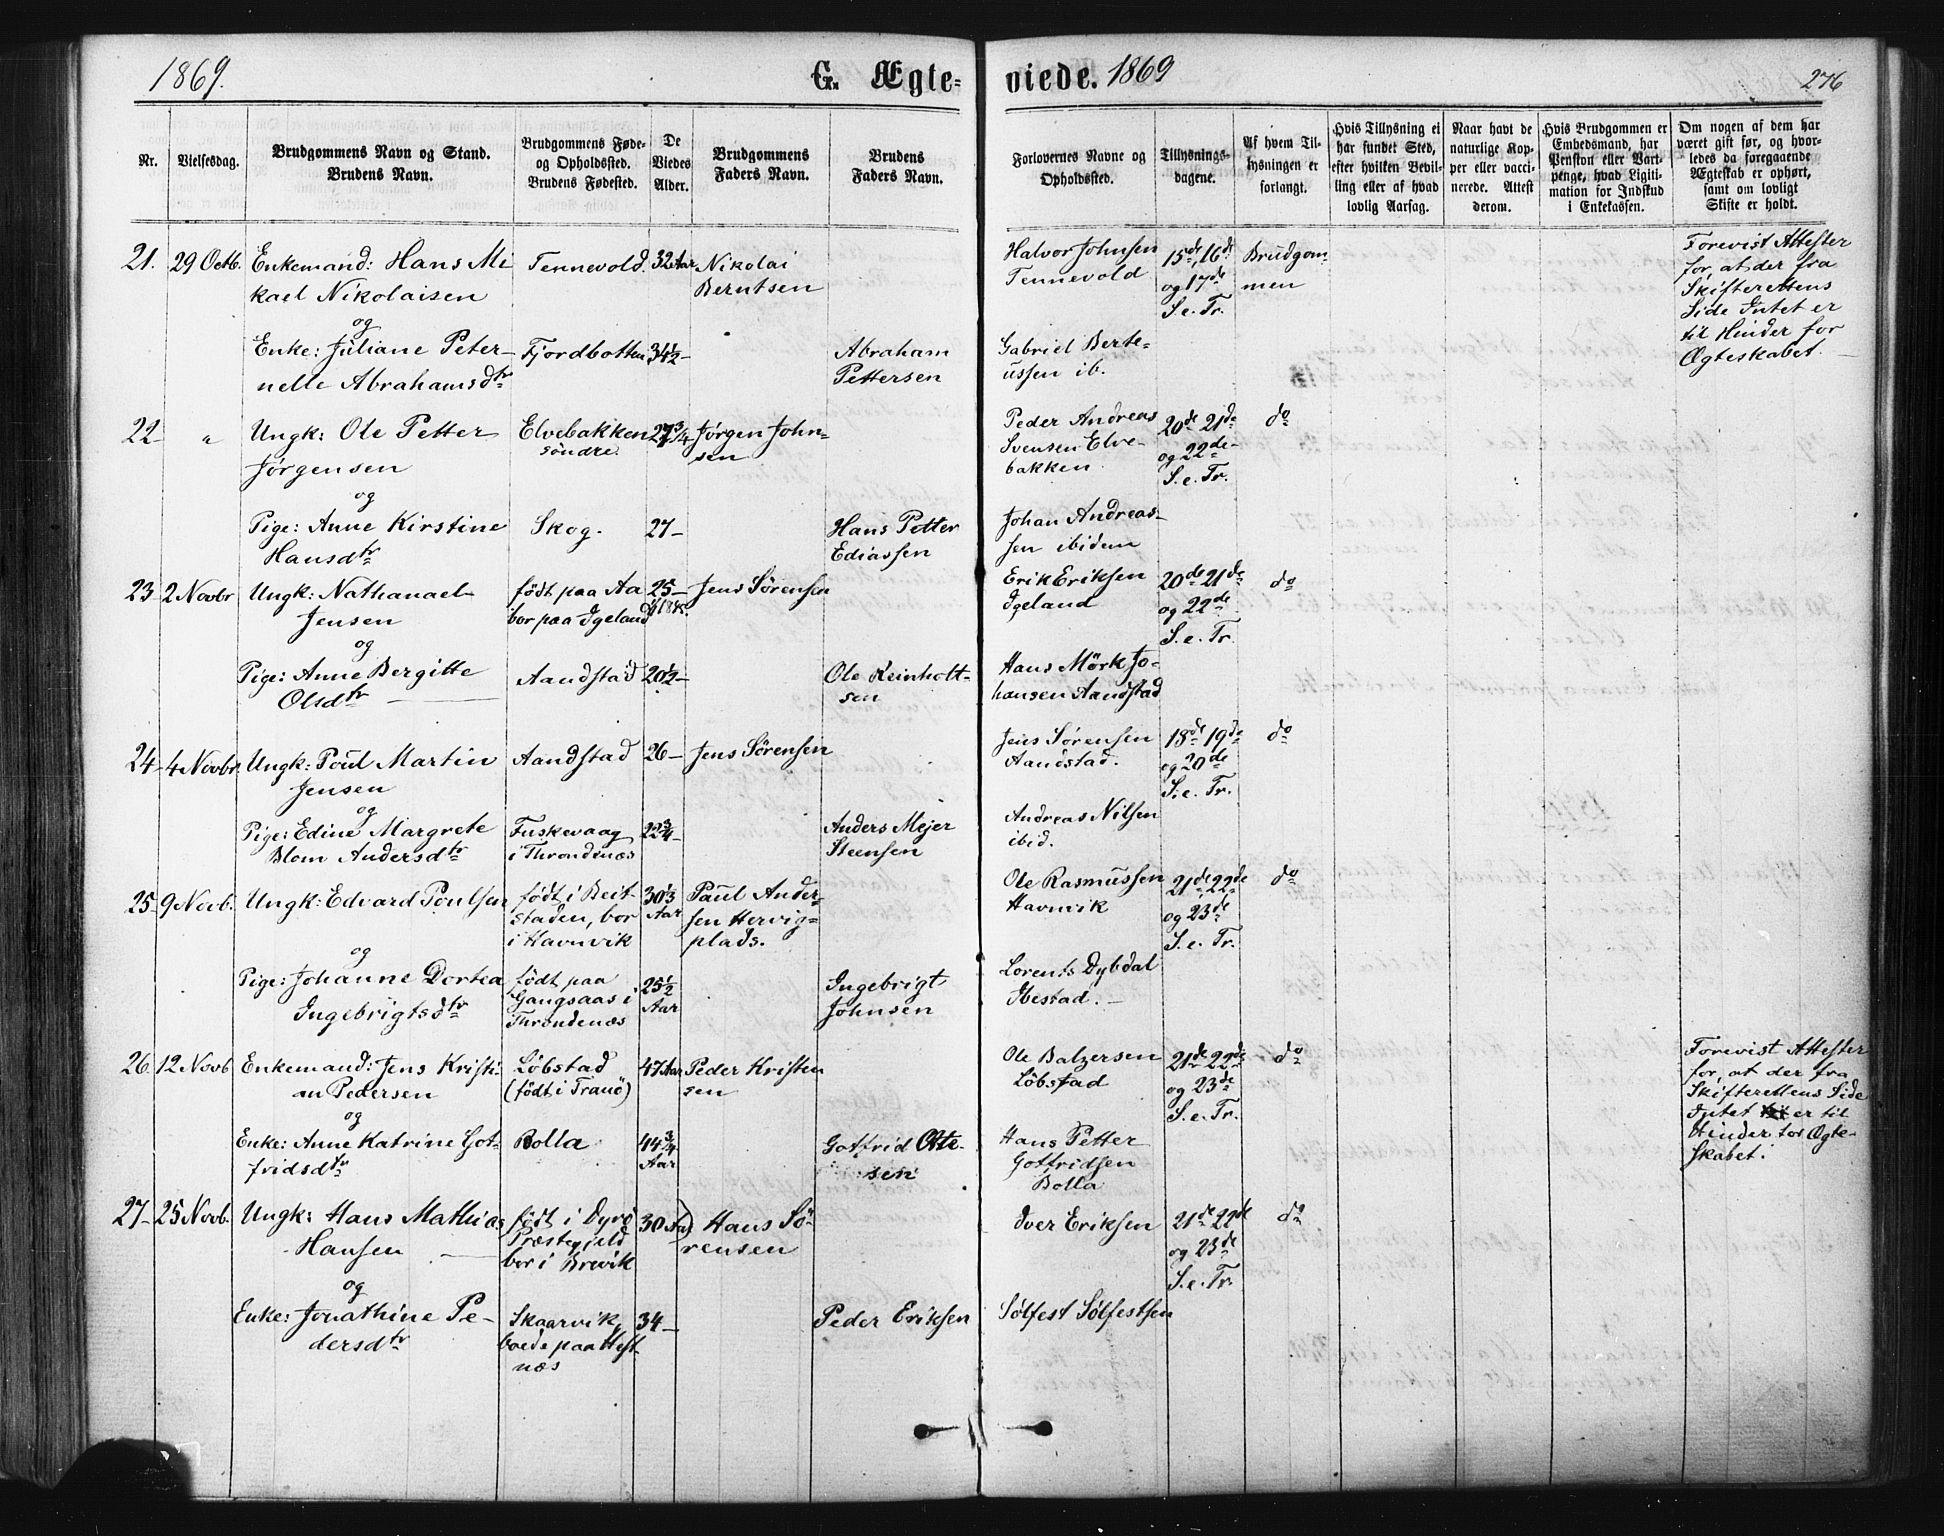 1869.
G. Ægte-
viede. 1869
276
Nr.
Vielsesdag.
Brudgommens Navn og Stand.
Brudens Navn.
Brudgommens Føde-
og Opholdssted.
Brudens Fødested.
De
Viedes
Alder.
Brudgommens
Faders Navn.
Brudens
Faders Navn.
Forlovernes Navne og
Opholdssted.
Tillysnings-
dagene.
Af hvem Til-
lysningen er
forlangt.
Hvis Tillysning ei
har fundet Sted,
efter hvilken Bevil-
ling eller af hvad
lovlig Aarsag.
Naar havt de
naturlige Kop-
per eller vacci-
nerede. Attest
derom.
Hvis Brudgommen er
Embedsmand, har
Pension eller Vart-
penge, hvad Ligiti-
mation for Indskud
i Enkekassen.
Om nogen af dem har
været gift før, og hvor-
ledes da foregaaende
Ægteskab er ophørt,
samt om lovligt
Skifte er holdt.
21.
29 Octb.
Enkemand: Hans Mi
kael Nikolaisen
og
Enke: Juliane Peter-
nelle Abrahamsdtr
Tennevold.
Fjordbotten
32 Aar
34½-
Nikolai
Berntsen
Abraham
Pettersen
Halvor Johnsen
Tennevold
Gabriel Berte-
ussen ib.
15de, 16de
og 17de
S. e. Tr.
Brudgom-
men
Forevist Attester
for, at der fra
Skifterettens
Side Intet er
til Hinder for
Ægteskabet. -
22-
"
Ungk: Ole Petter
Jørgensen
og
Pige: Anne Kirstine
Hansdtr
Elvebakken
søndre.
Skog.
27¾
27-
Jørgen John-
sen
Hans Petter
Ediassen
Peder Andreas
Svensen Elve-
bakken.
Johan Andreas-
sen ibidem
20de 21de
og 22de-
S. e. Tr.
do
23-
2 Novbr
Ungk: Nathanael
Jensen
og
Pige: Anne Bergitte
Olsdtr
født paa Aa
bor paa Igeland
Aandstad
25-
20½-
Jens Sørensen
Ole Reinholt-
sen
Erik Eriksen
Igeland
Hans Mörk Jo-
hansen Aandstad
20de 21de
og 22de
S. e. Tr.
do
24-
4 Novbr.
Ungk: Poul Martin
Jensen
og
Pige: Edine Margrete
Blom Andersdtr
Aandstad
Fuskevaag
i Throndenæs
26-
22¾-
Jens Sørensen
Anders Mejer
Steensen
Jens Sørensen
Aandstad.
Andreas Nilsen
ibid.
18de 19de
og 20de
S. e. Tr.
do
25-
9 Novb.
Ungk: Edvard Poulsen
og
Pige: Johanne Dortea
Ingebrigtsdtr
født i Beit-
staden, bor
i Havnvik
født paa
Gangsaas i
Throndenæs
30⅓
Aar
25½
Aar
Paul Ander-
sen Hervig-
plads.
Ingebrigt
Johnsen
Ole Rasmussen
Havnvik
Lorents Dybdal
Ibestad. -
21de 22de
og 23de
S. e. Tr.
do
26.
12 Novb
Enkemand: Jens Kristi-
an Pedersen
og
Enke: Anne Katrine Got-
fridsdtr
Löbstad
(født i Tranö)
Bolla
47 Aar
44¾
Aar
Peder Kristen
sen
Gotfrid Otte-
sen
Ole Balzersen
Löbstad
Hans Petter
Gotfridsen
Bolla
21de 22de
og 23de
S. e. Tr.
do
Forevist Attester
for, at der fra
Skifterettens Side
Intet er til
Hinder for Ægte-
skabet.
27-
25 Novb.
Ungk: Hans Mathias
Hansen
og
Enke: Jonathine Pe-
dersdtr
født i Dyrö
Præstegjeld
bor i Brevik
Skaarvik,
boede paa Hest-
næs
30 Aar
34-
Hans Sö-
rensen
Peder Eriksen
Iver Eriksen
Sølfest Sølfestsen
21de 22de
og 23de
S. e. Tr.
do